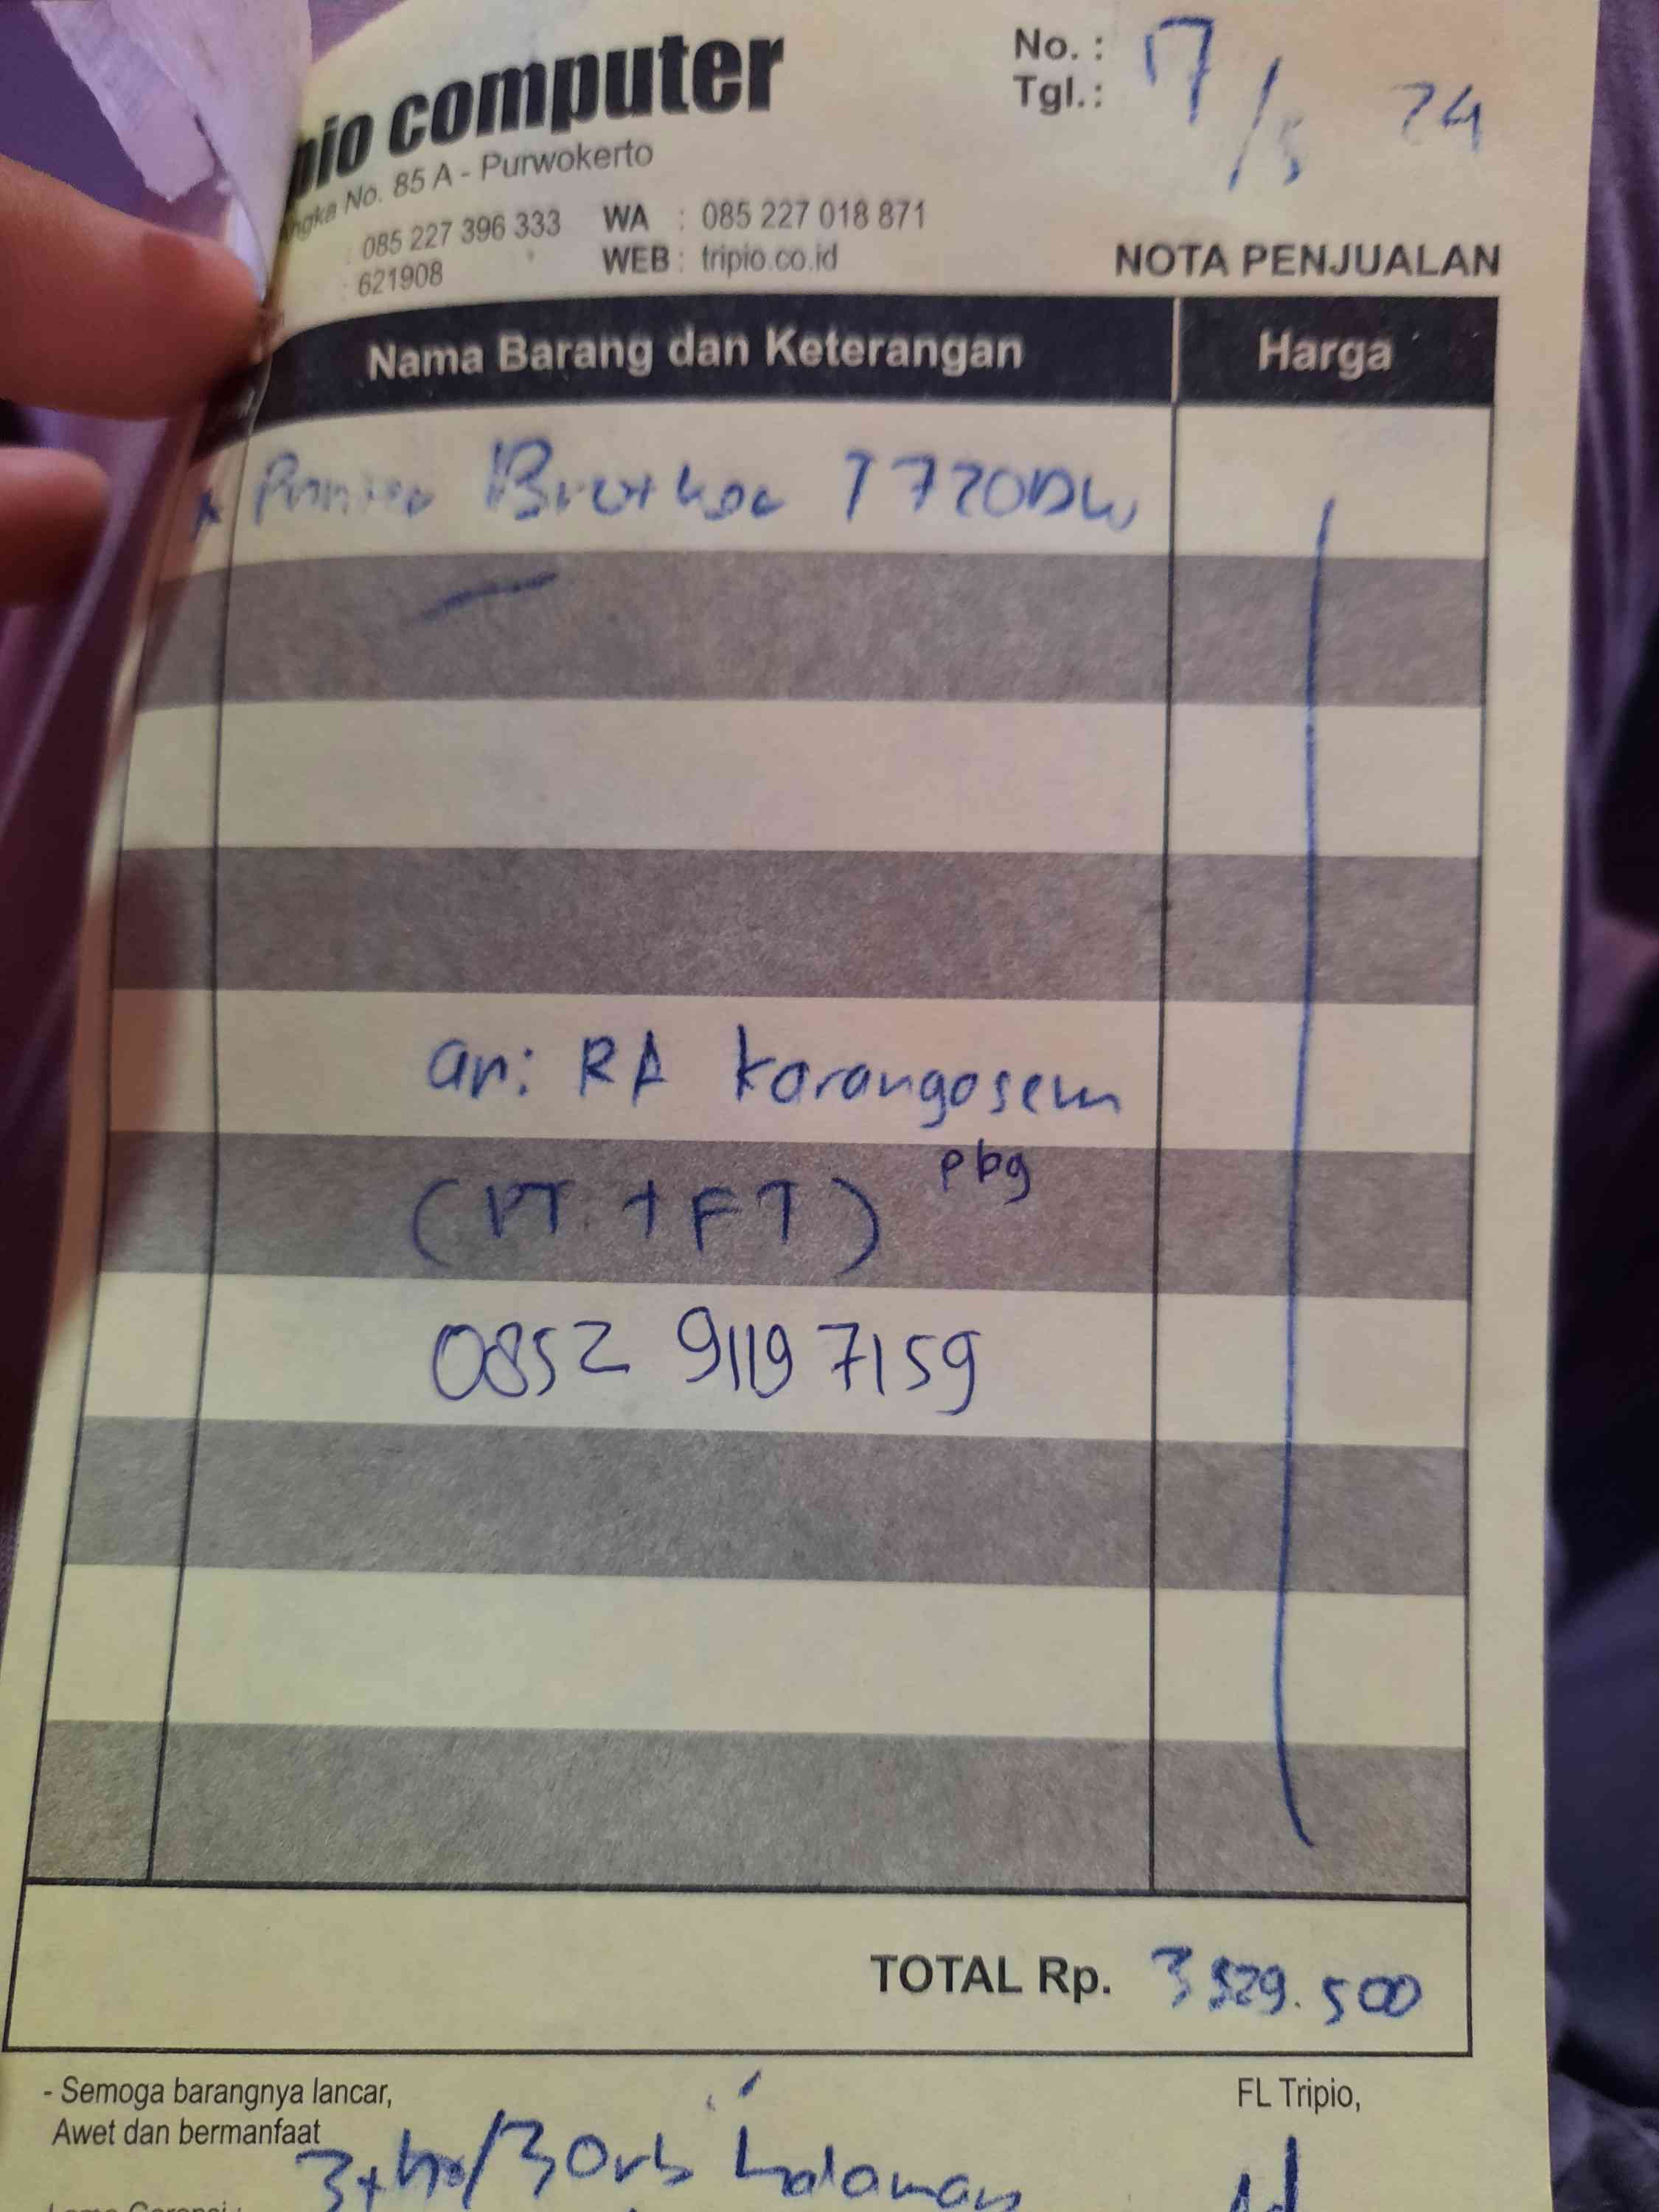 pio computer
No. :
Tgl. : 17/5 24
ngka No. 85 A - Purwokerto
: 085 227 396 333 WA : 085 227 018 871
: 621908 WEB : tripio.co.id
NOTA PENJUALAN
Nama Barang dan Keterangan Harga
Printer Brother T720DW
an: RA Karangasem
pbg
(PT + FT)
0852 9119 7159
TOTAL Rp. 3 529.500
- Semoga barangnya lancar,
Awet dan bermanfaat
FL Tripio,
3thn/30rb halaman